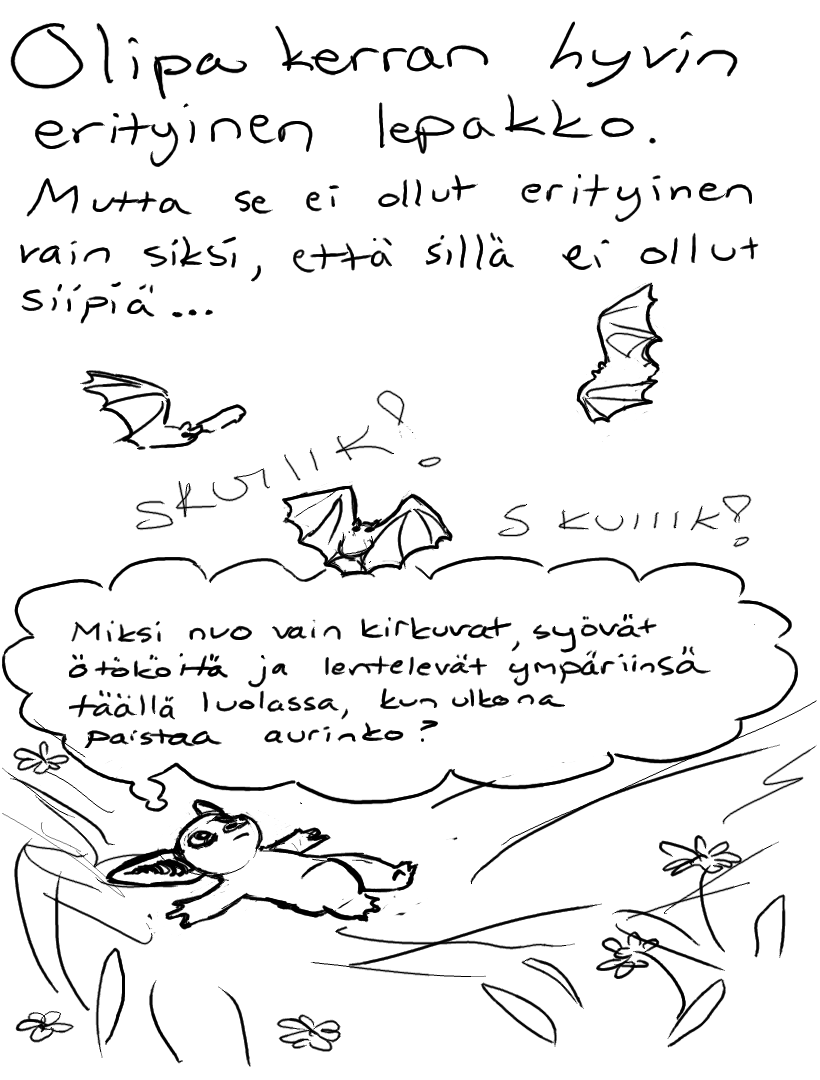 Olipa kerran hyvin
erityinen lepakko.
Mutta se ei ollut erityinen
vain siksi, että sillä ei ollut
siipiä...
SKUIIIK!
SKUIIIK!
Miksi nuo vain kirkuvat, syövät
ötököitä ja lentelevät ympäriinsä
täällä luolassa, kun ulkona
paistaa aurinko?